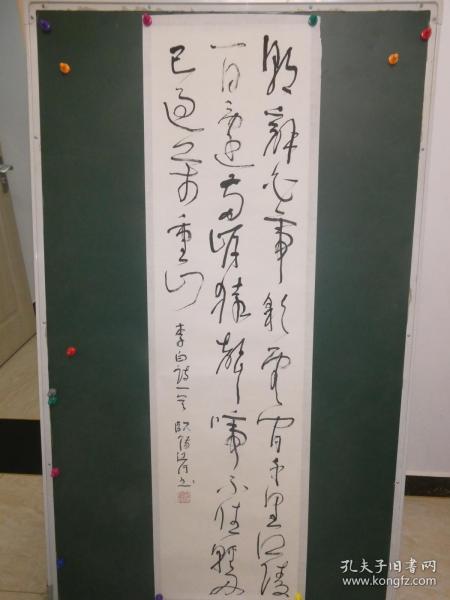 朝辭白帝彩雲間千里江陵
一日還兩岸猿聲啼不住輕舟
已過萬重山
李白詩一首 歐陽江河書
孔夫子旧书网
www.kongfz.com